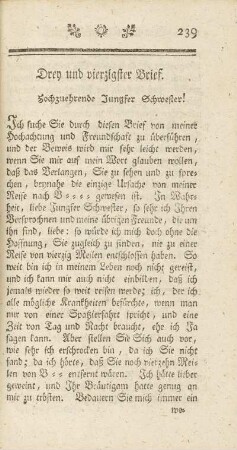 239
Drey und vierzigster Brief.
Hochzuehrende Jungfer Schwester!
Ich suche Sie durch diesen Brief von meiner
Hochachtung und Freundschaft zu überführen,
und der Beweis wird mir sehr leicht werden,
wenn Sie mir auf mein Wort glauben wollen,
daß das Verlangen, Sie zu sehen und zu spre-
chen, beynahe die einzige Ursache von meiner
Reise nach B---- gewesen ist. In Wahr-
heit, liebe Jungfer Schwester, so sehr ich Ihren
Versprochnen und meine übrigen Freunde, die um
ihn sind, liebe: so würde ich mich doch ohne die
Hoffnung, Sie zugleich zu finden, nie zu einer
Reise von vierzig Meilen entschlossen haben. So
weit bin ich in meinem Leben noch nicht gereist,
und ich kann mir auch nicht einbilden, daß ich
jemals wieder so weit reisen werde; ich, der ich
alle mögliche Krankheiten befürchte, wenn man
nur von einer Spatzierfahrt spricht, und eine
Zeit von Tag und Nacht braucht, ehe ich Ja
sagen kann. Aber stellen Sie Sich auch vor,
wie sehr ich erschrocken bin, da ich Sie nicht
fand; da ich hörte, daß Sie noch vierzehn Mei-
len von B--- entfernt wären. Ich hätte lieber
geweint, und Ihr Bräutigam hatte genug an
mir zu trösten. Bedauern Sie mich immer ein
we-